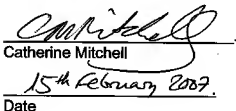 CMMitchell
Catherine Mitchell
15th February 2007.
Date